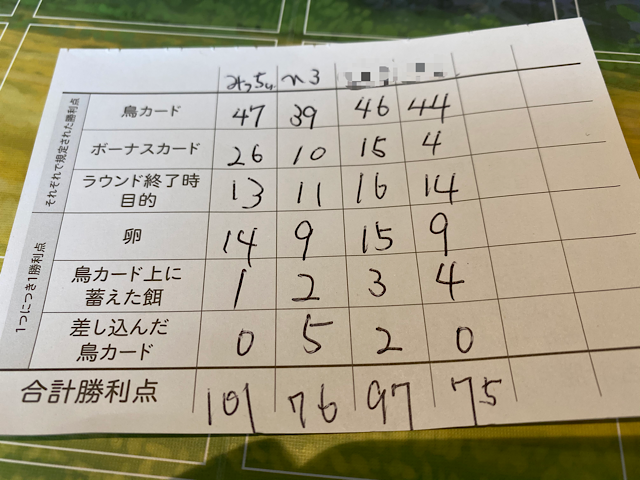 みっちゅ n3
それぞれで規定された勝利点
鳥カード 47 39 46 44
ボーナスカード 26 10 15 4
ラウンド終了時
目的 13 11 16 14
1つにつき1勝利点
卵 14 9 15 9
鳥カード上に
蓄えた餌 1 2 3 4
差し込んだ
鳥カード 0 5 2 0
合計勝利点 101 76 97 75